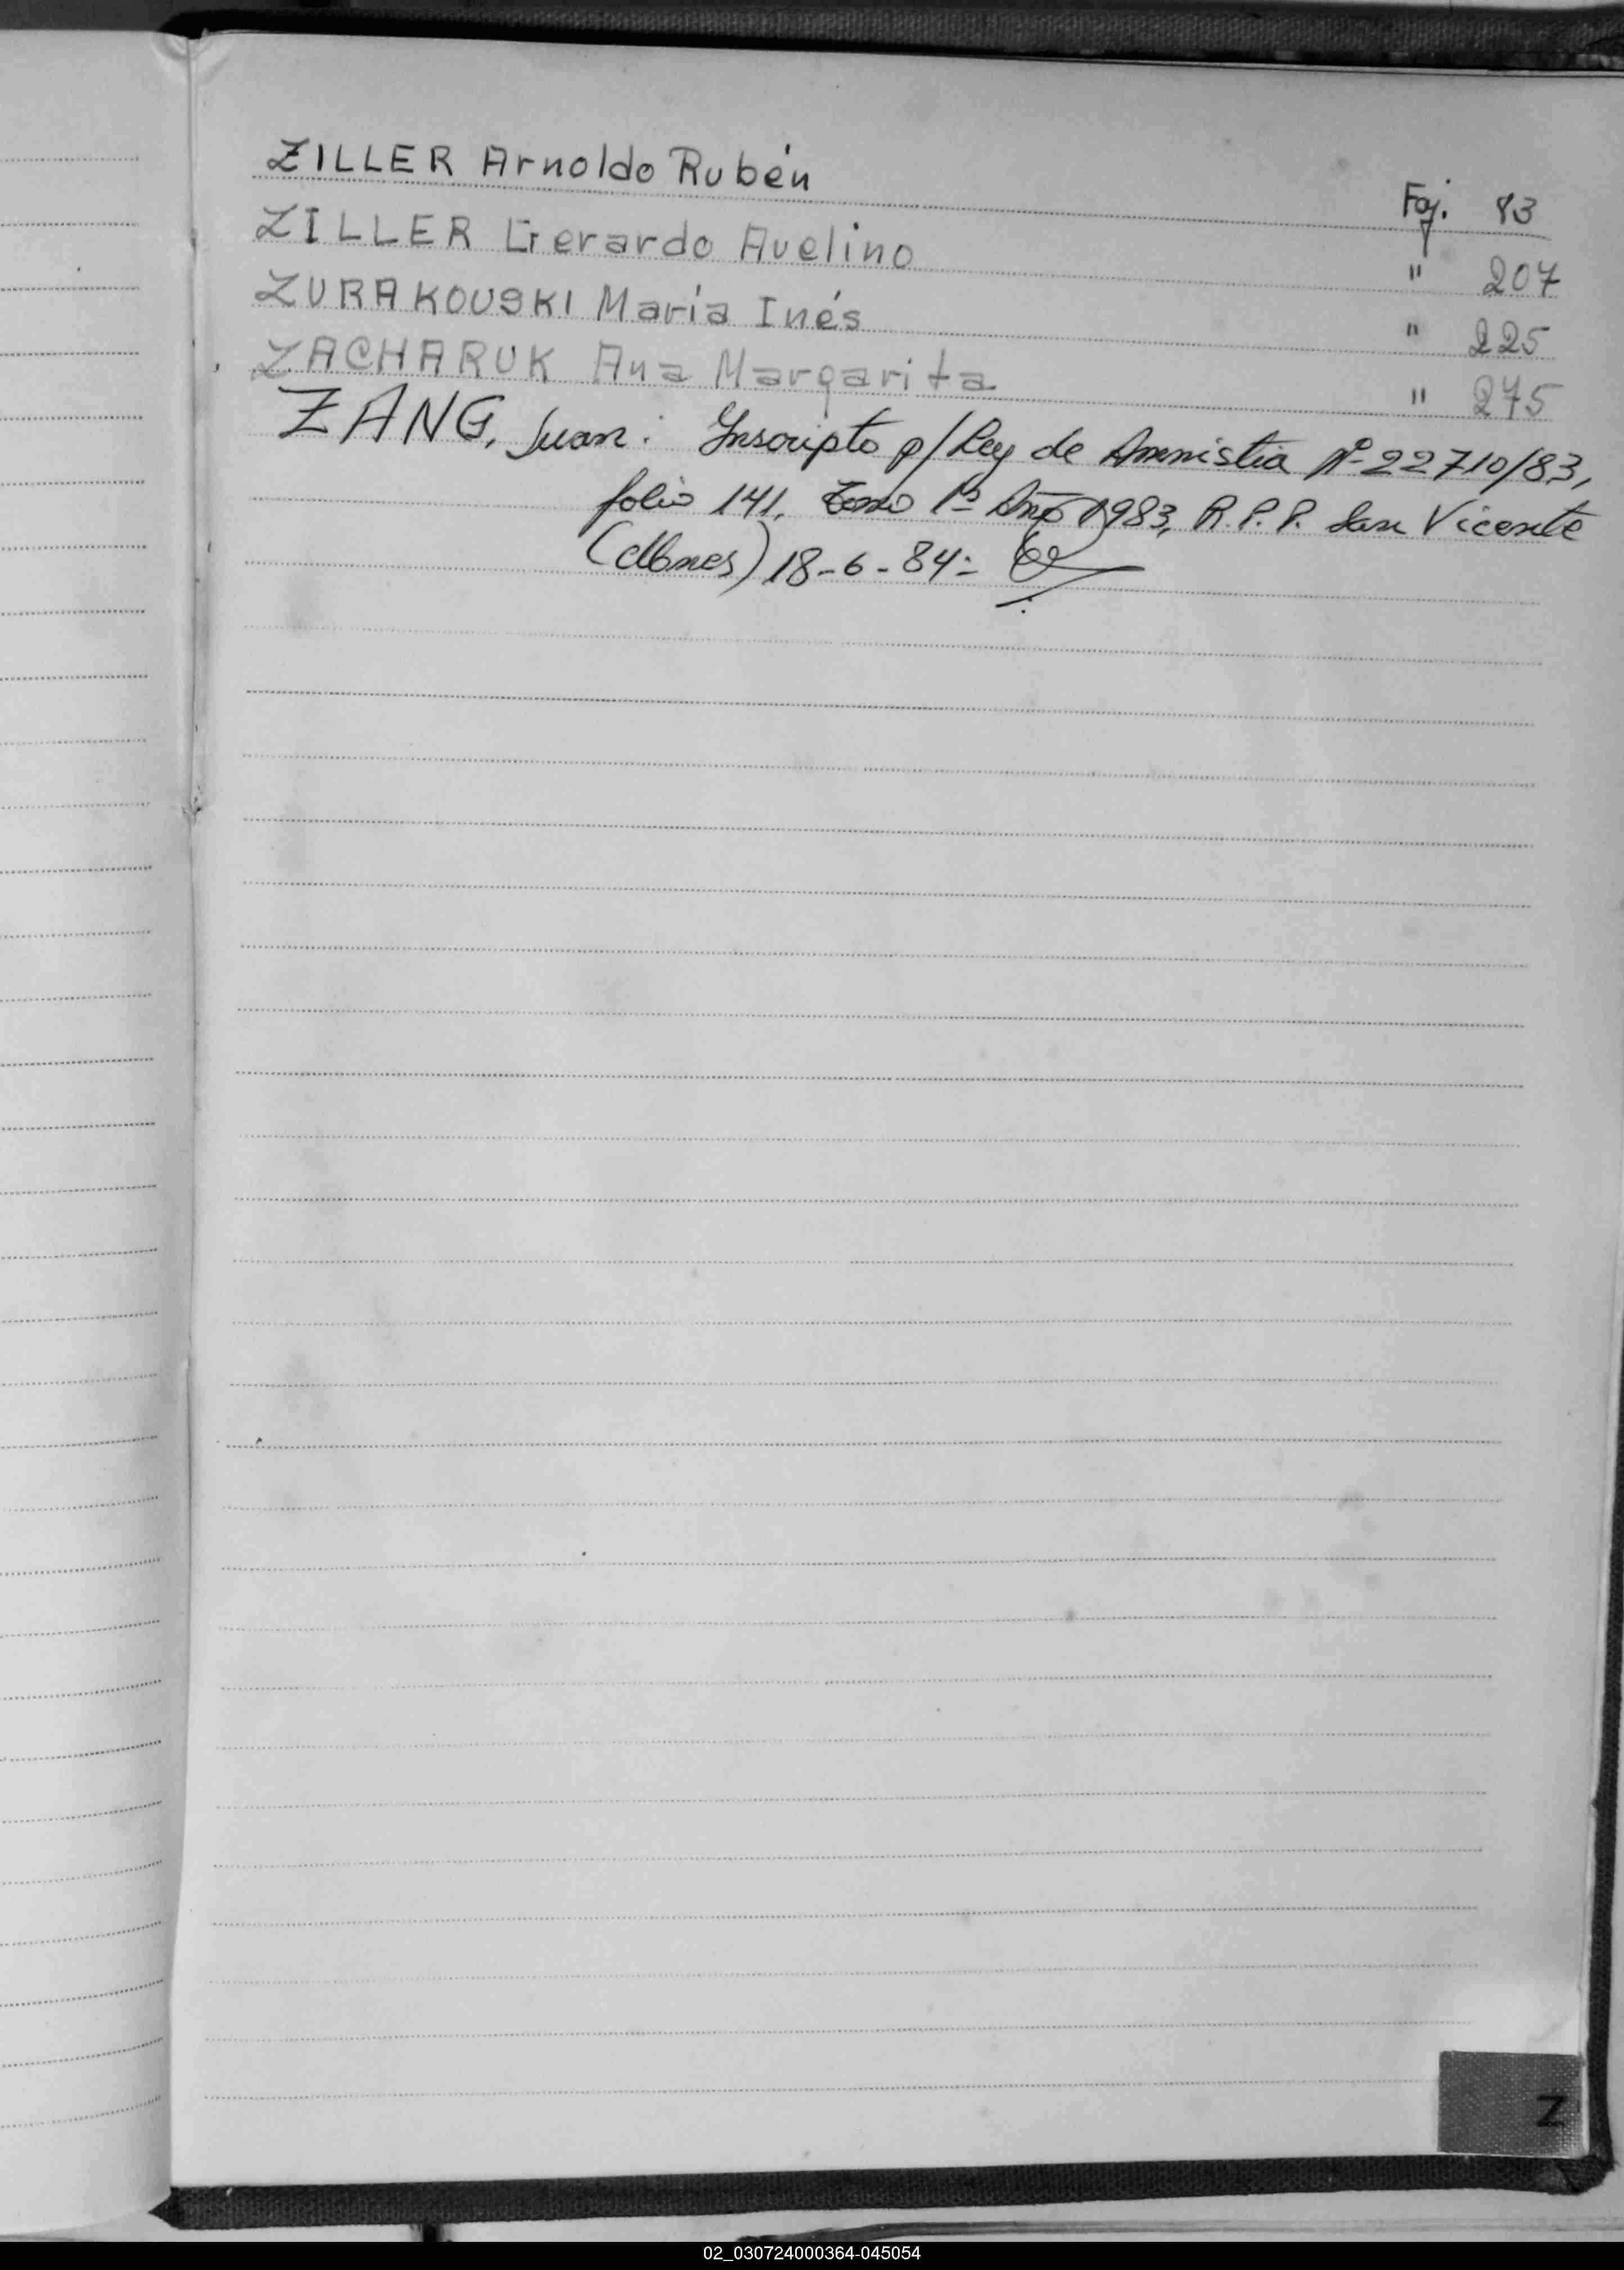 ZILLER Arnoldo Rubén Foj. 83
ZILLER Gerardo Avelino " 207
ZURAKOUSKI María Inés " 225
ZACHARUK Ana Margarita " 275
ZANG, Juan: Inscripto p/ Ley de Amnistia Nº 22710/83,
folio 141, Tomo 1º Año 1983, R.P.P. San Vicente
(Mnes) 18-6-84=
Z
02_030724000364-045054